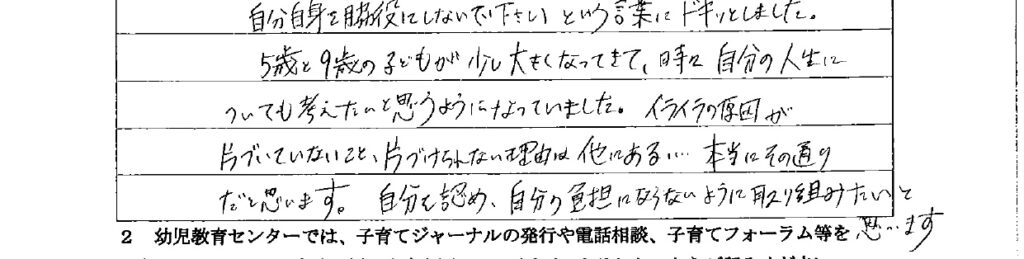 自分自身を脇役にしないで下さい という言葉に ドキッとしました。
5歳と9歳の子どもが 少し大きくなってきて、時に 自分の人生に
ついても考えたいと思うようになっていました。イライラの原因が
片づいていないこと、片づけられない理由は 他にある… 本当にその通り
だと思います。 自分を認め、自分の負担にならないように取り組みたいと
思います
2 幼児教育センターでは、子育てジャーナルの発行や電話相談、子育てフォーラム等を